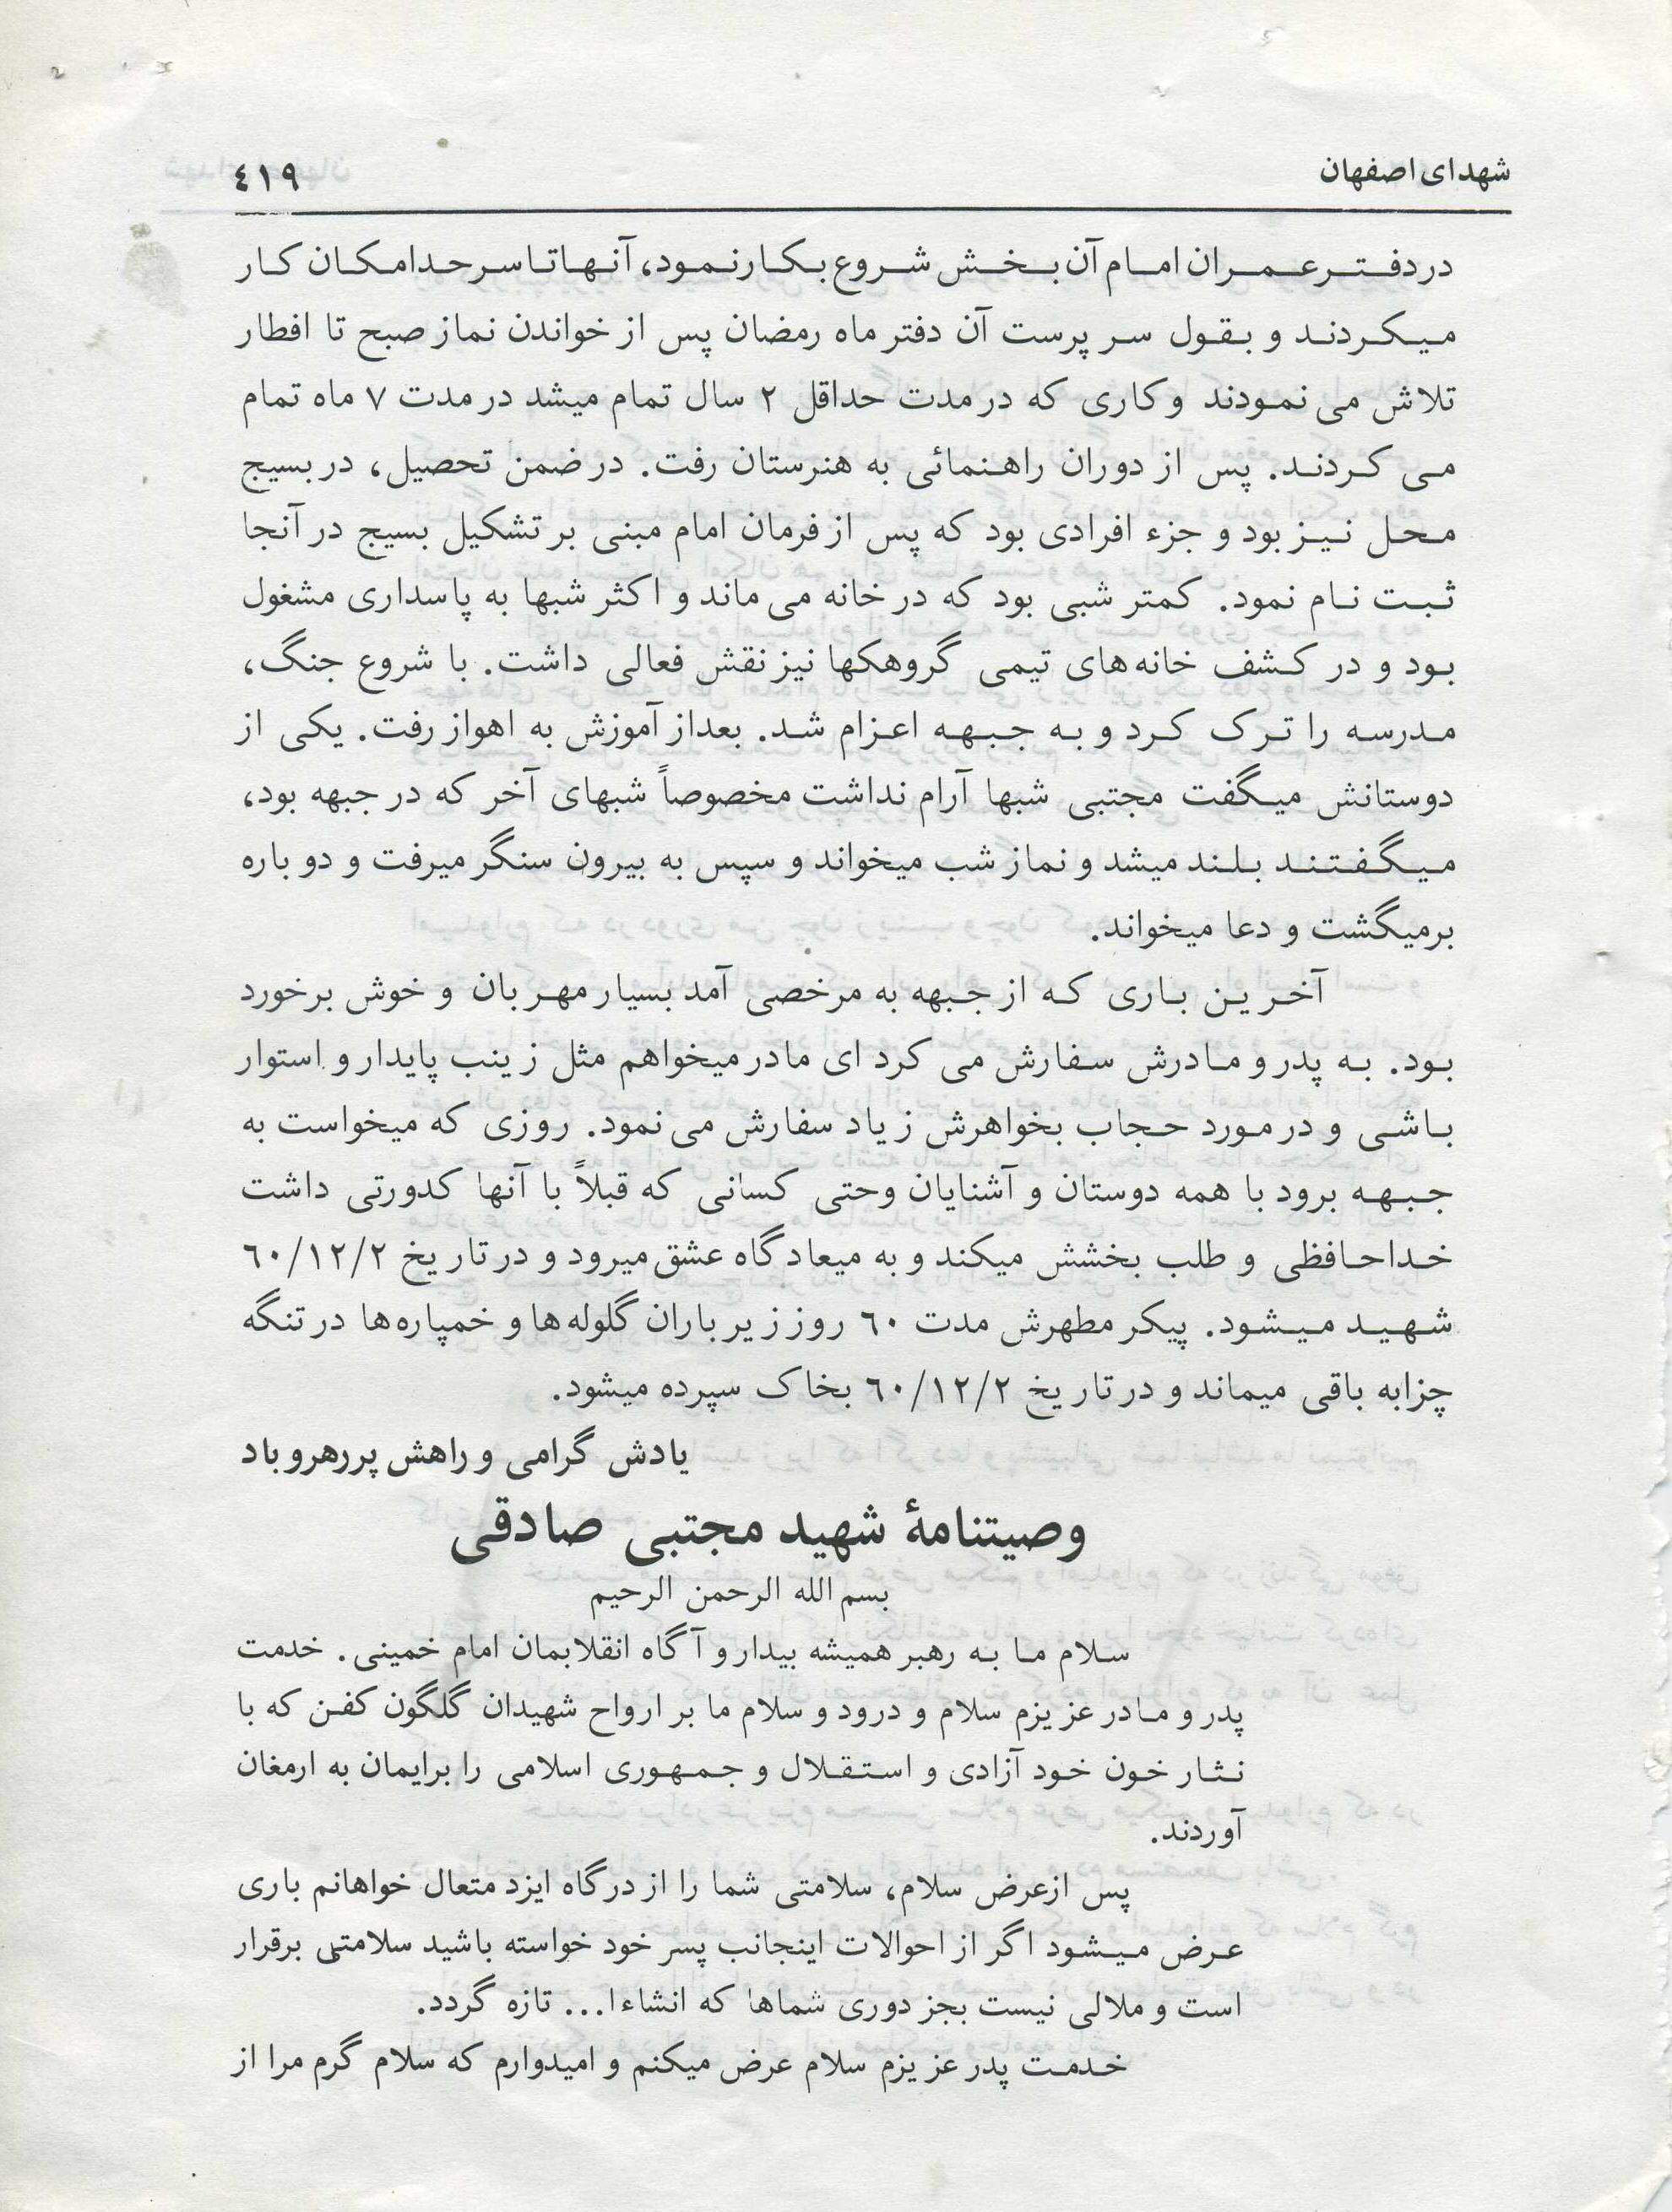 شهدای اصفهان
٤١٩
در دفتر عمران امام آن بخش شروع بکار نمود، آنها تا سر حد امکان کار
میکردند و بقول سر پرست آن دفتر ماه رمضان پس از خواندن نماز صبح تا افطار
تلاش می نمودند و کاری که در مدت حداقل ۲ سال تمام میشد در مدت ۷ ماه تمام
می کردند. پس از دوران راهنمائی به هنرستان رفت. در ضمن تحصیل، در بسیج
محل نیز بود و جزء افرادی بود که پس از فرمان امام مبنی بر تشکیل بسیج در آنجا
ثبت نام نمود. کمتر شبی بود که در خانه می ماند و اکثر شبها به پاسداری مشغول
بود و در کشف خانه های تیمی گروهکها نیز نقش فعالی داشت. با شروع جنگ،
مدرسه را ترک کرد و به جبهه اعزام شد. بعد از آموزش به اهواز رفت. یکی از
دوستانش میگفت مجتبی شبها آرام نداشت مخصوصاً شبهای آخر که در جبهه بود،
میگفتند بلند میشد و نماز شب میخواند و سپس به بیرون سنگر میرفت و دو باره
برمیگشت و دعا میخواند.
آخرین باری که از جبهه به مرخصی آمد بسیار مهربان و خوش برخورد
بود. به پدر و مادرش سفارش می کرد ای مادر میخواهم مثل زینب پایدار و استوار
باشی و در مورد حجاب بخواهرش زیاد سفارش می نمود. روزی که میخواست به
جبهه برود با همه دوستان و آشنایان وحتی کسانی که قبلاً با آنها کدورتی داشت
خداحافظی و طلب بخشش میکند و به میعادگاه عشق میرود و در تاریخ ٦٠/١٢/٢
شهید میشود. پیکر مطهرش مدت ٦٠ روز زیر باران گلوله ها و خمپاره ها در تنگه
چزابه باقی میماند و در تاریخ ٦٠/١٢/٢ بخاک سپرده میشود.
یادش گرامی و راهش پررهرو باد
وصیتنامهٔ شهید مجتبی صادقی
بسم الله الرحمن الرحیم
سلام ما به رهبر همیشه بیدار و آگاه انقلابمان امام خمینی. خدمت
پدر و مادر عزیزم سلام و درود و سلام ما بر ارواح شهیدان گلگون کفن که با
نثار خون خود آزادی و استقلال و جمهوری اسلامی را برایمان به ارمغان
آوردند.
پس از عرض سلام، سلامتی شما را از درگاه ایزد متعال خواهانم باری
عرض میشود اگر از احوالات اینجانب پسر خود خواسته باشید سلامتی برقرار
است و ملالی نیست بجز دوری شماها که انشاءا... تازه گردد.
خدمت پدر عزیزم سلام عرض میکنم و امیدوارم که سلام گرم مرا از